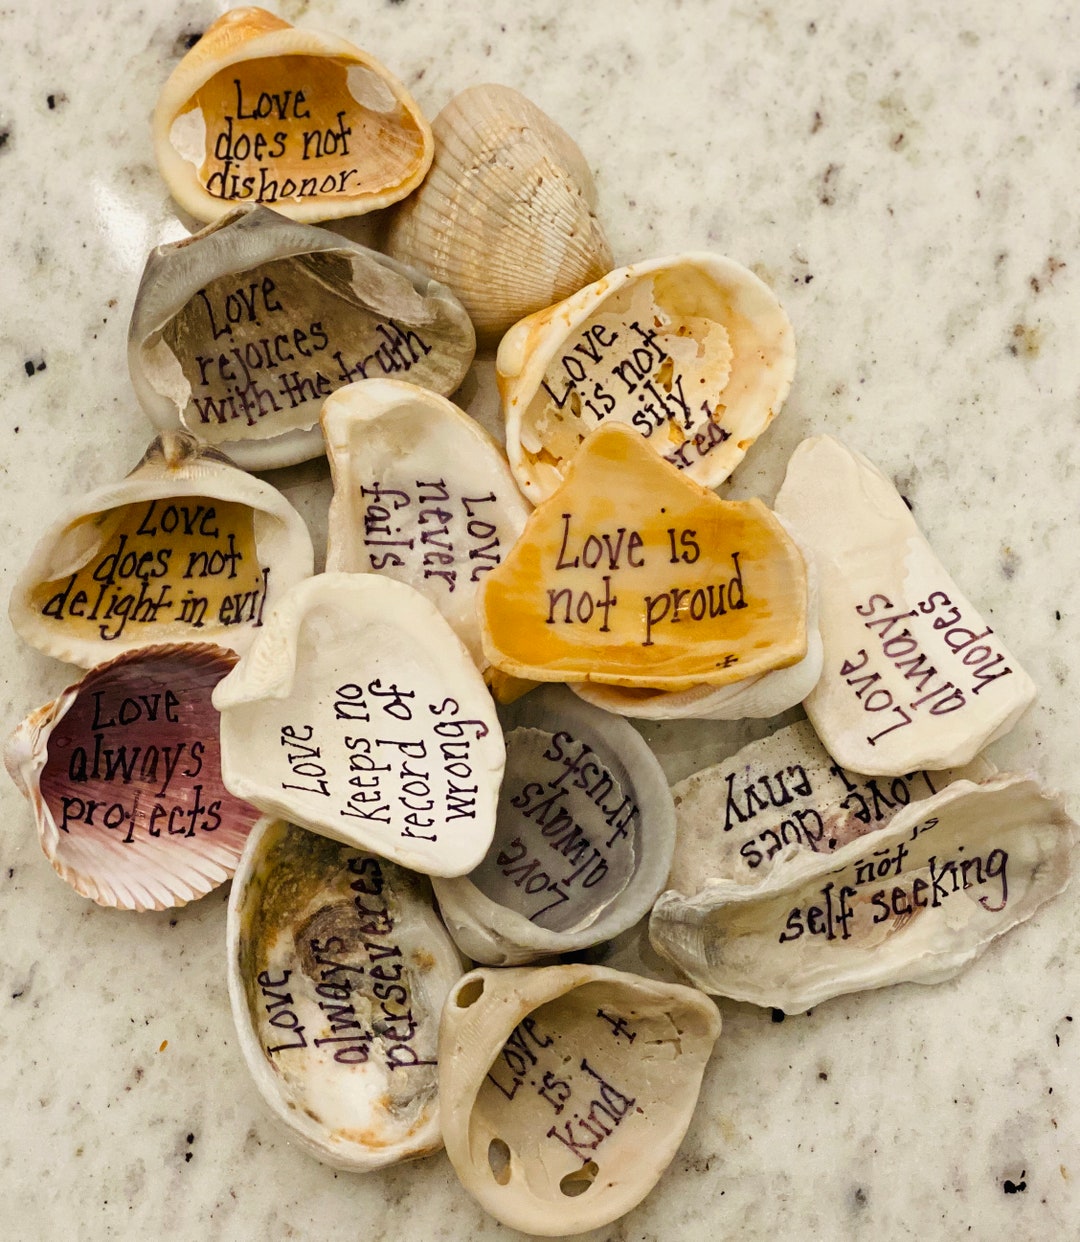 Love
does not
dishonor.
Love
rejoices
with the truth
Love
is not
sily
ered
Love
never
fails
Love is
not proud
Love
does not
delight in evil
Love
always
hopes
Love
always
protects
Love
keeps no
record of
wrongs
Love
always
trusts
Love
does
envy
is
not
self seeking
Love
always
perseveres
Love
is
Kind